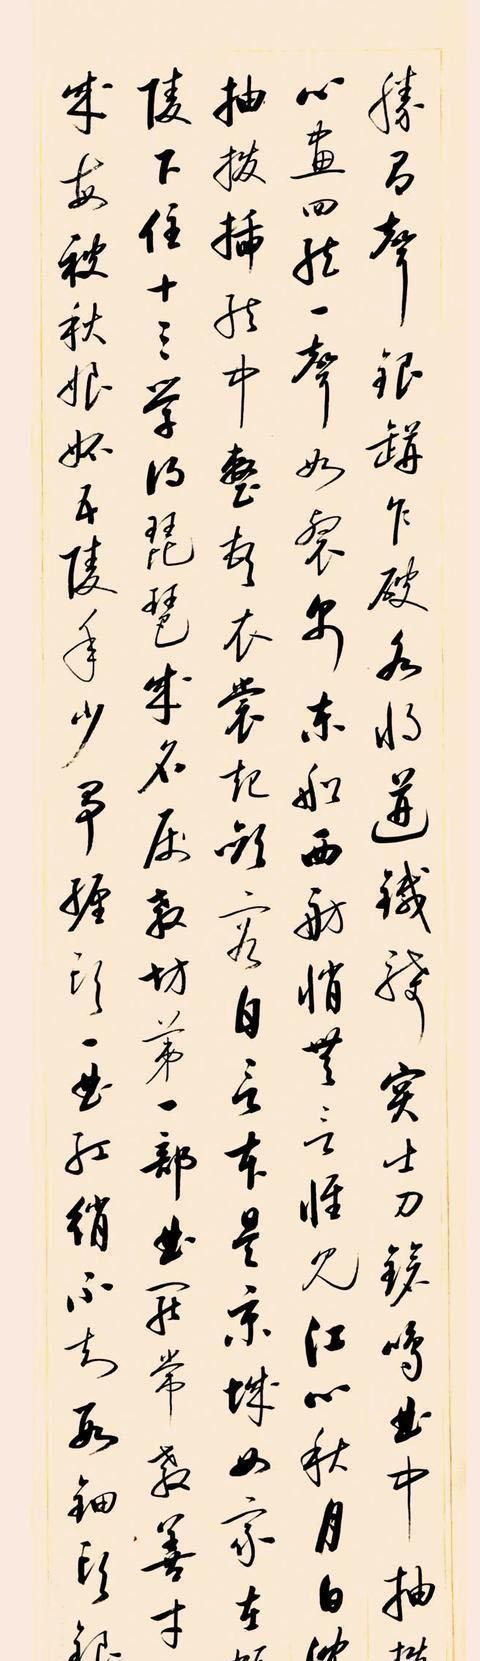 勝有聲銀缾乍破水將迸鐵騎突出刀鎗鳴曲中抽撥
心畫四絃一聲如裂帛東船西舫悄無言惟見江心秋月白沈
抽撥插絃中整頓衣裳起斂容自言本是京城女家在蝦
陵下住十三學得琵琶成名屬教坊第一部曲罷常教善才
成每被秋娘妬五陵年少爭纏頭一曲紅綃不知數鈿頭銀